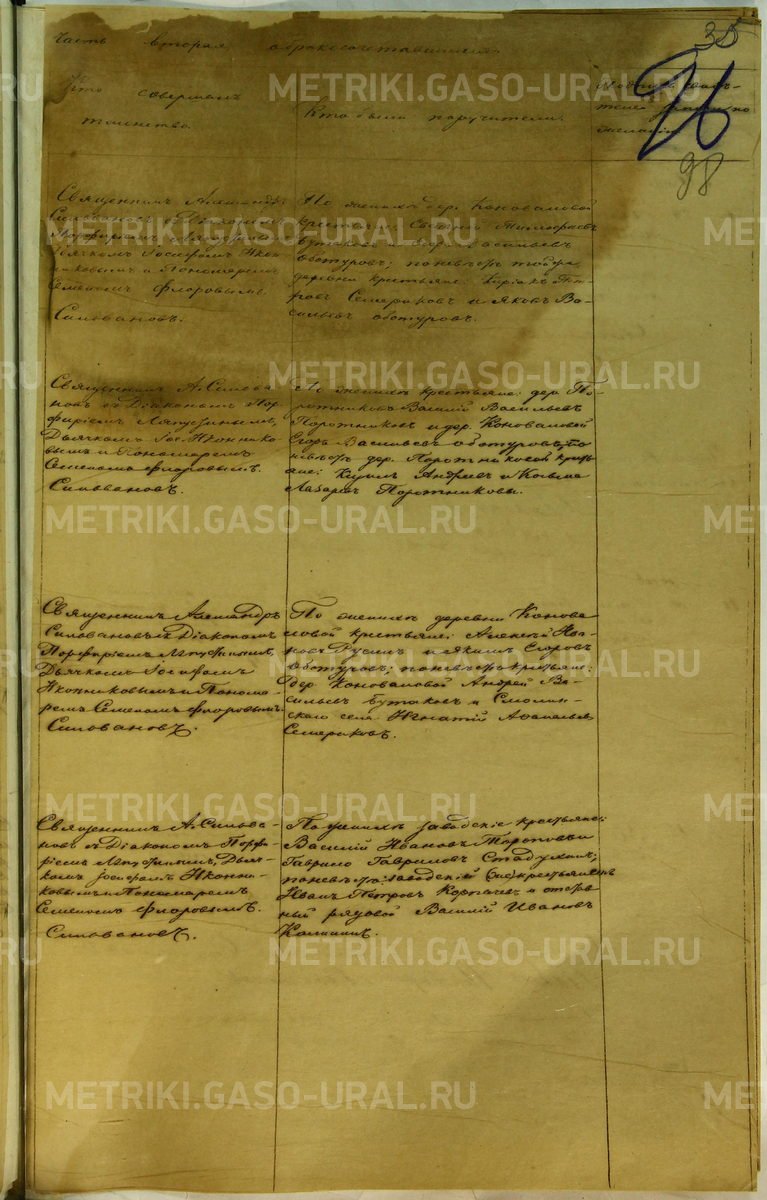 35
Часть вторая о бракосочетавшихся
96
98
Кто совершалъ
таинство.
Кто были поручители.
желанію
Священникъ Александръ
Силовановъ съ Діакономъ
Порфиріемъ Ляпустинымъ
Дьячкомъ Іосифомъ Икон-
никовымъ и Пономаремъ
Семеномъ Флоровымъ.
Силовановъ.
По женихѣ дер. Коноваловой
крестьяне:
Бутаковъ и Егоръ Васильевъ
Обатуровъ; по невѣстѣ той же
деревни крестьяне: Киріакъ Пет-
ровъ Семериковъ и Яковъ Ва-
сильевъ Обатуровъ.
Священникъ А. Силова-
новъ съ Діакономъ Пор-
фиріемъ Ляпустинымъ,
Дьячкомъ Іос. Иконнико-
вымъ и Пономаремъ
Семеномъ Флоровымъ.
Силовановъ.
По женихѣ крестьяне: дер. По-
ротниковой Василій Васильевъ
Поротниковъ и дер. Коноваловой
Егоръ Васильевъ Обатуровъ; по
невѣстѣ дер. Поротниковой кресть-
яне: Кирилъ Андреевъ и Козьма
Лазаревъ Поротниковы.
Священникъ Александръ
Силовановъ съ Діакономъ
Порфиріемъ Ляпустинымъ,
Дьячкомъ Іосифомъ
Иконниковымъ и Понома-
ремъ Семеномъ Флоровымъ.
Силовановъ.
По женихѣ деревни Конова-
ловой крестьяне: Алексѣй
Русинъ и Якимъ Егоровъ
Обатуровъ; по невѣстѣ крестьяне:
дер. Коноваловой Андрей Ва-
сильевъ Бутаковъ и Смолин-
скаго села Игнатій Афанасьевъ
Семериковъ.
Священникъ А. Силова-
новъ съ Діакономъ Порфи-
ріемъ Ляпустинымъ, Дьяч-
комъ Іосифомъ Иконни-
ковымъ и Пономаремъ
Семеномъ Флоровымъ.
Силовановъ.
По женихѣ заводскіе крестьяне:
Василій Ивановъ Тороповъ и
Гаврило Гавриловъ Стадухинъ;
по невѣстѣ: заводскій крестьянинъ
Иванъ Петровъ Корпачевъ и отстав-
ный рядовой Василій Ивановъ
Калининъ.
METRIKI.GASO-URAL.RU